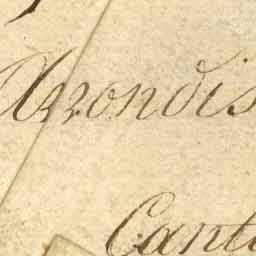 Arrondis
Canto